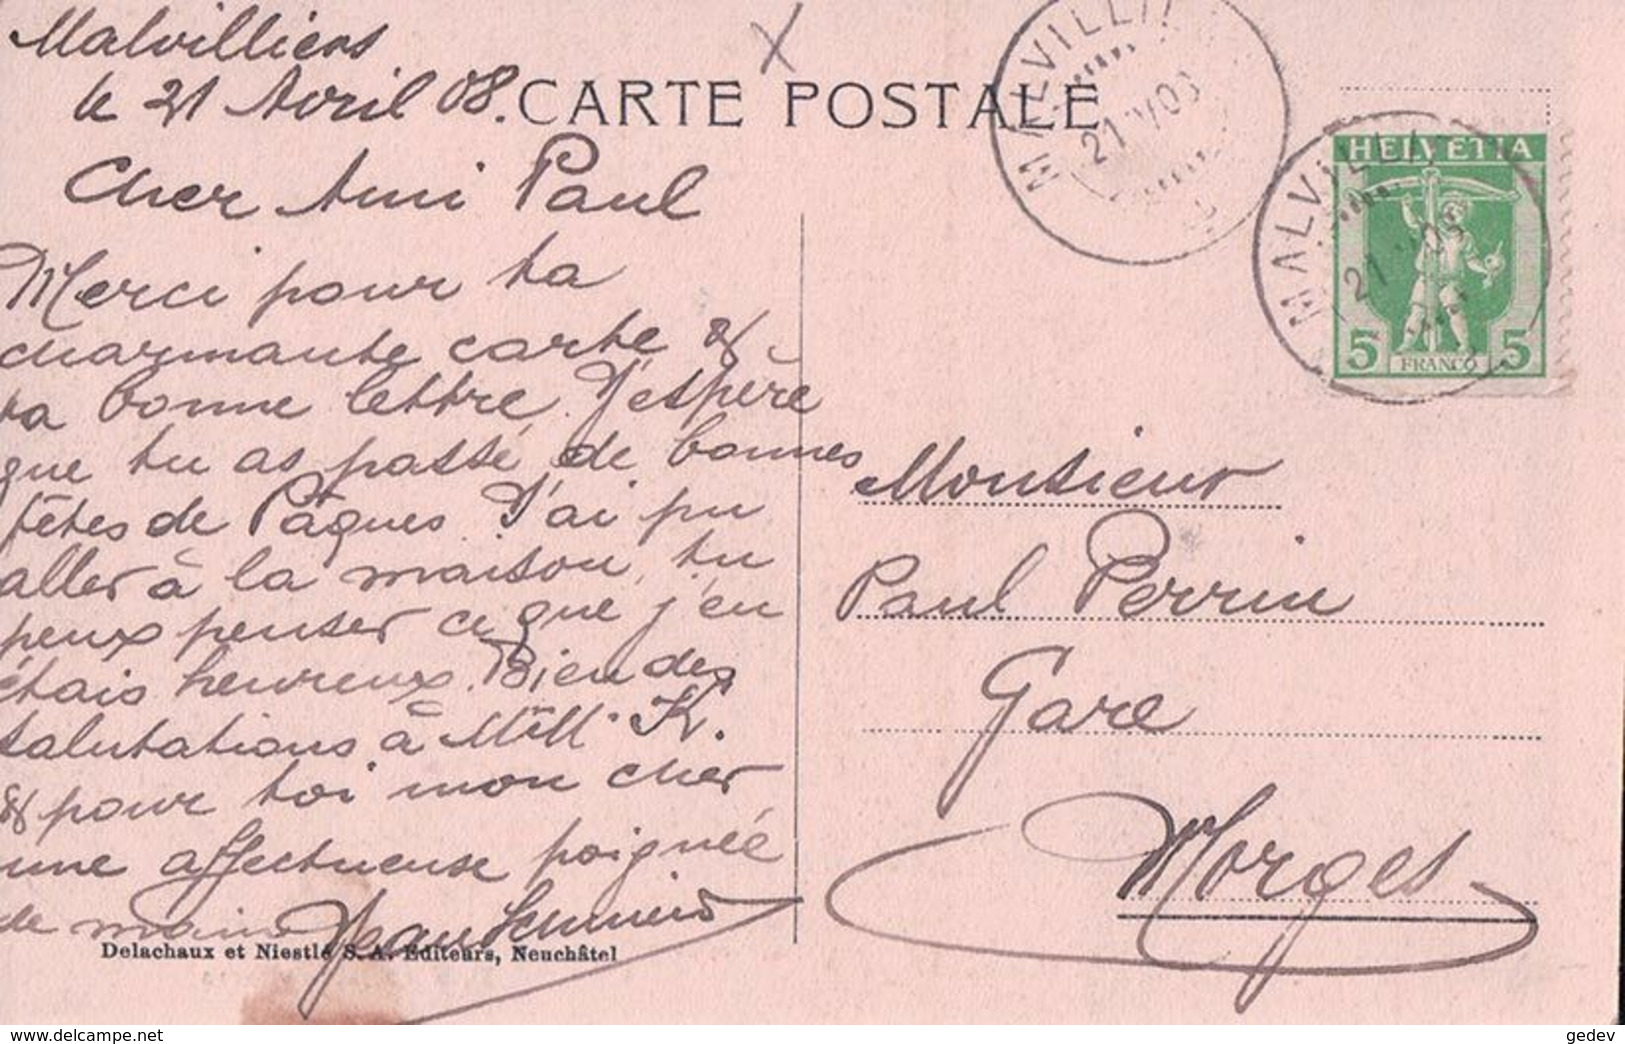 Malvilliers
le 21 Avril 08.
CARTE POSTALE
Cher Ami Paul
Merci pour ta
charmante carte &
ta bonne lettre. J'espère
que tu as passé de bonnes
fêtes de Pâques. J'ai pu
aller à la maison, tu
peux penser ce que j'en
étais heureux. Bien des
salutations à Mlle K.
& pour toi mon cher
une affectueuse poignée
de main Jean
Delachaux et Niestlé S. A. Editeurs, Neuchâtel
MALVILLI
21 IV 08
HELVETIA
5 FRANCO 5
MALVILLI
21 IV 08
Monsieur
Paul Perrin
Gare
Morges
www.delcampe.net
gedev